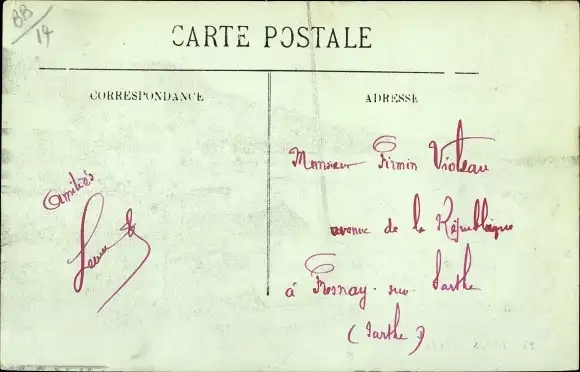 BB
14
CARTE POSTALE
CORRESPONDANCE
ADRESSE
Amitiés
Monsieur Firmin Violeau
avenue de la République
à Fresnay-sur Sarthe
(Sarthe)